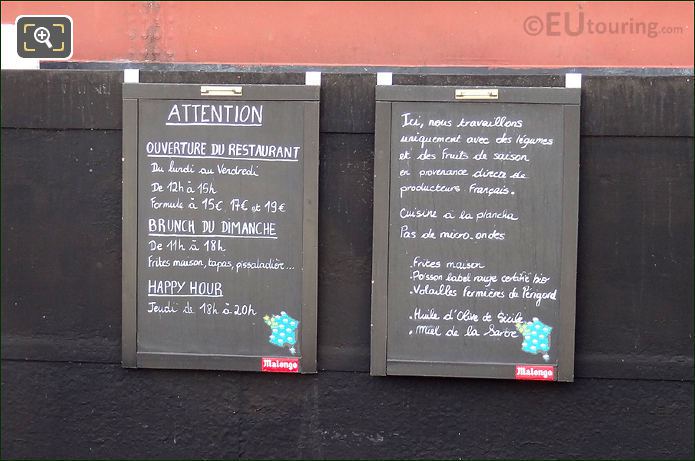 ©EUtouring.com
ATTENTION
OUVERTURE DU RESTAURANT
Du lundi au Vendredi
De 12h à 15h
Formule à 15€, 17€ et 19€
BRUNCH DU DIMANCHE
De 11h à 18h
Frites maison, tapas, pissaladière...
HAPPY HOUR
Jeudi de 18h à 20h
Malongo
Ici, nous travaillons
uniquement avec des légumes
et des fruits de saison
en provenance directe de
producteurs Français.
Cuisine à la plancha
Pas de micro-ondes
. Frites maison
. Poisson label rouge certifié bio
. Volailles fermières de Périgord
. Huile d'Olive de Sicile
. Miel de la Sartre
Malongo